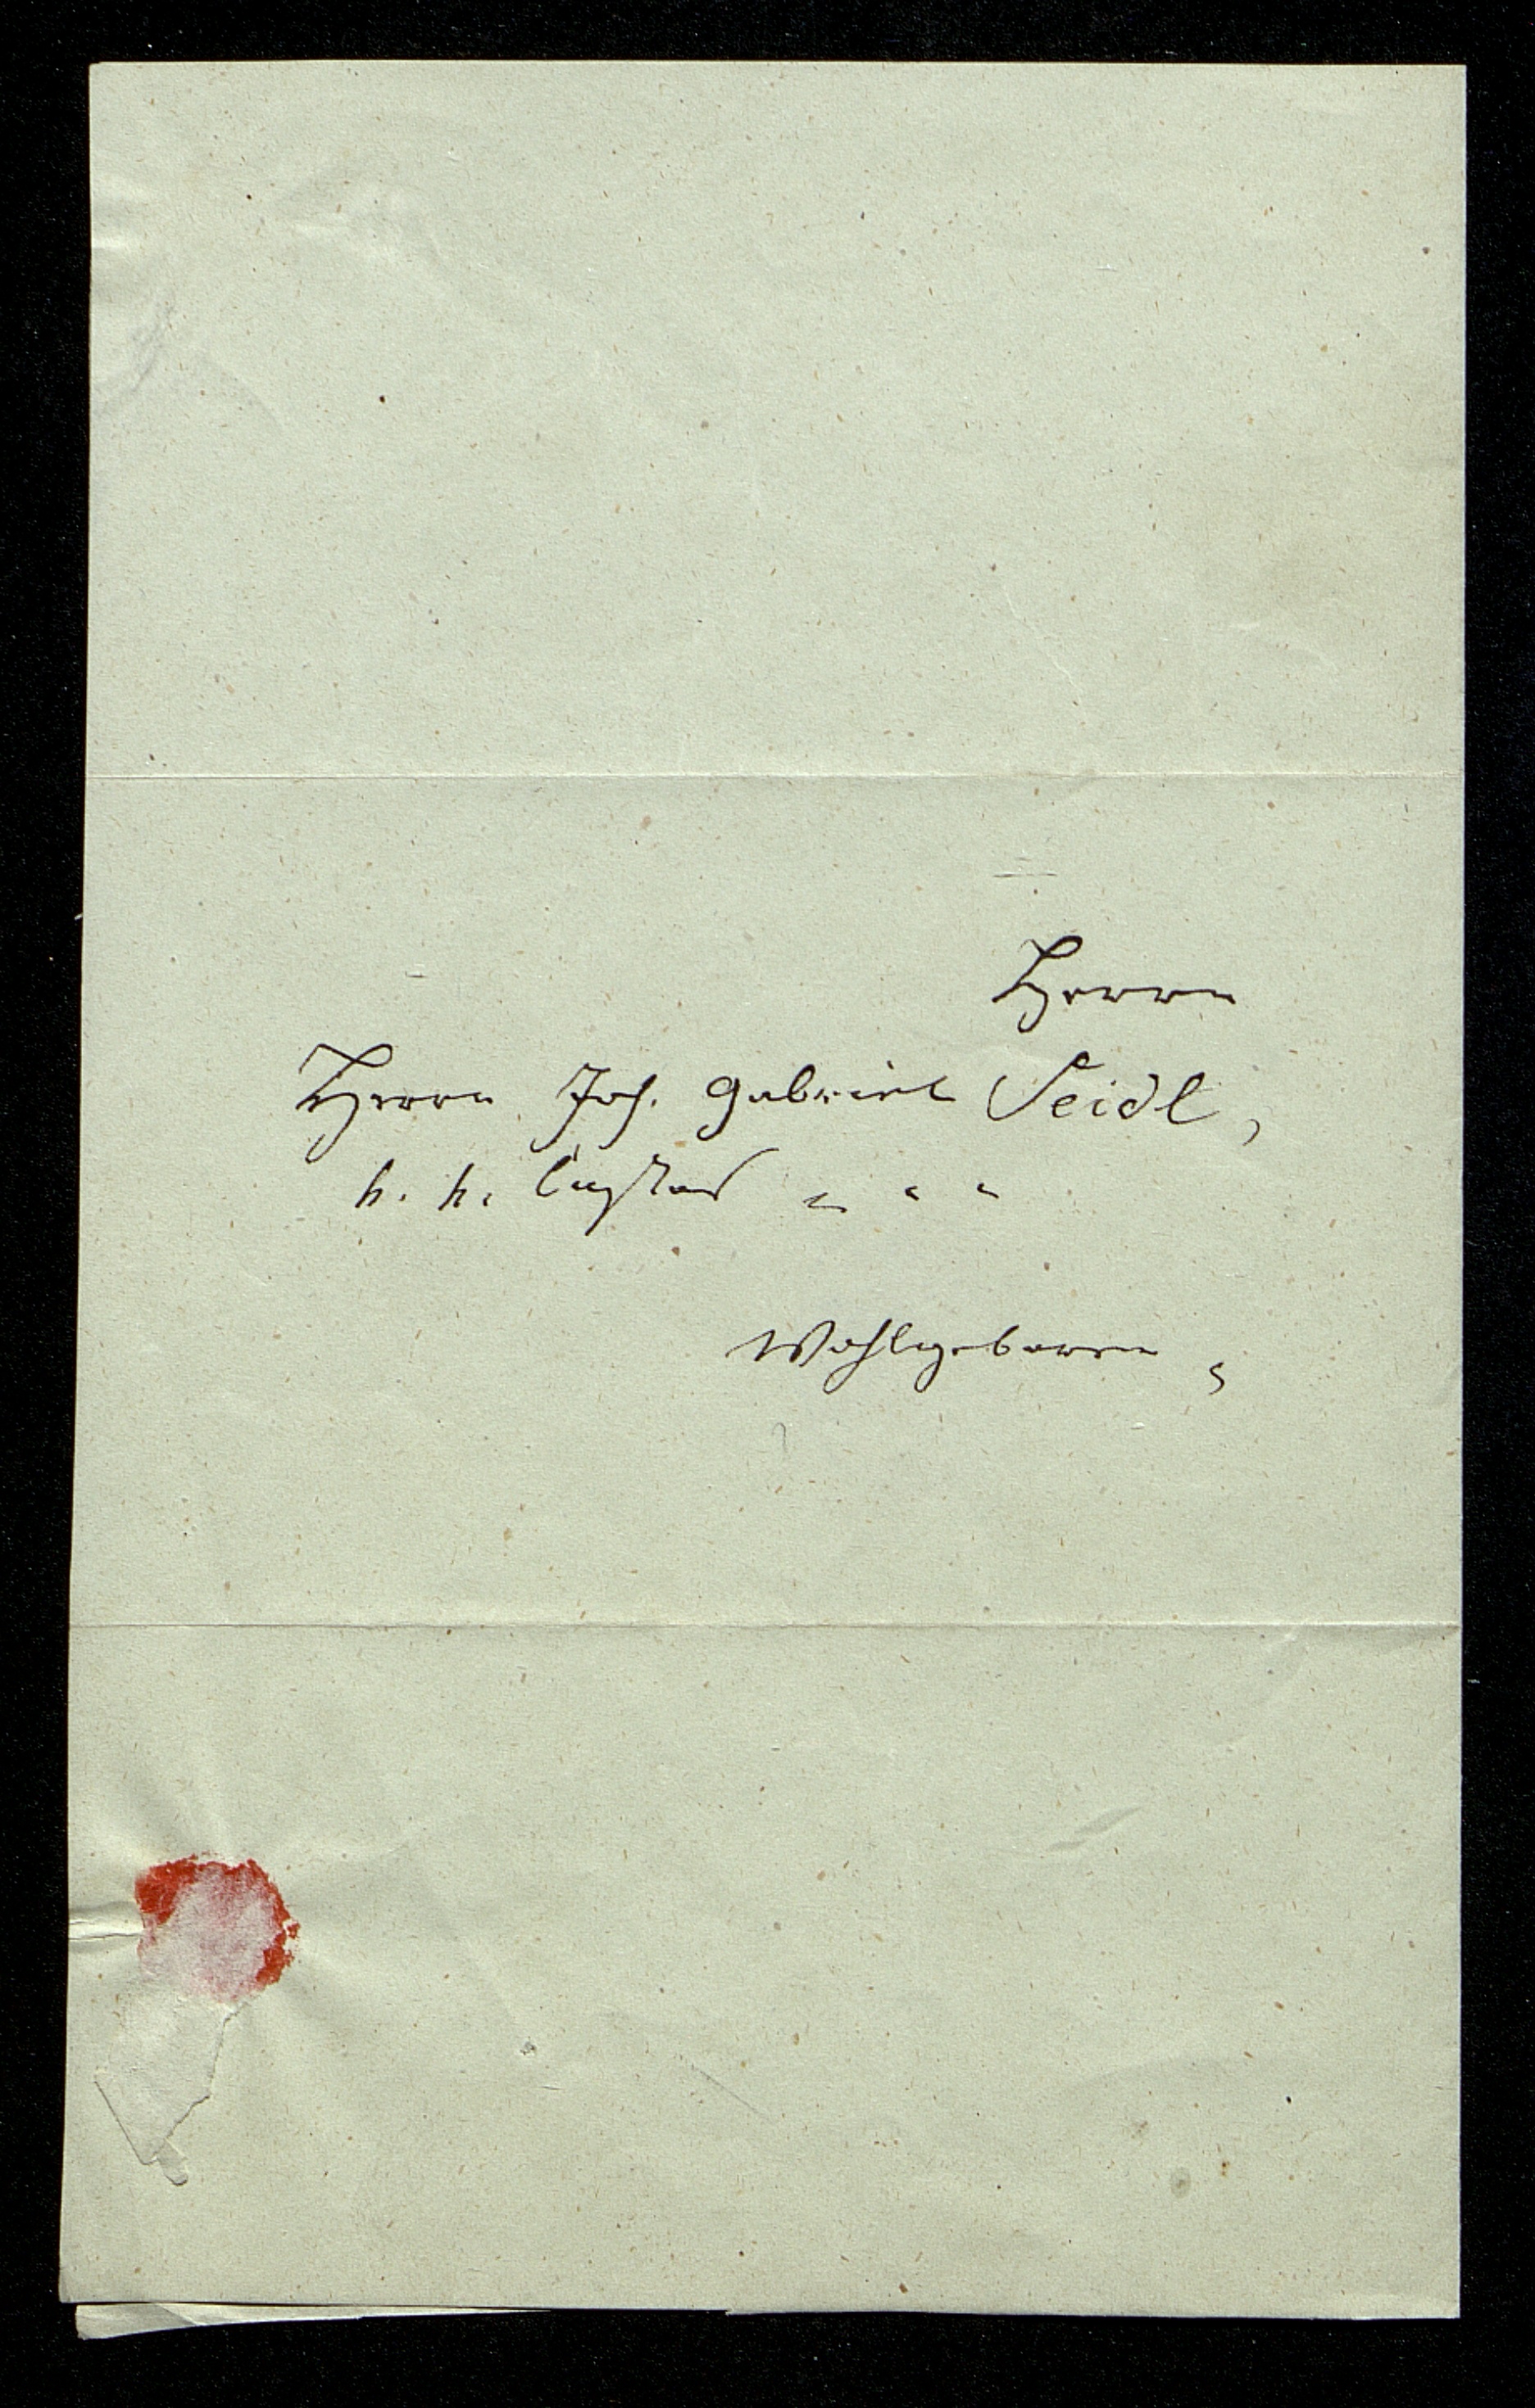 Herrn
Herrn Joh. Gabriel Seidl,
k. k. Custos „ „ „
Wohlgeboren,